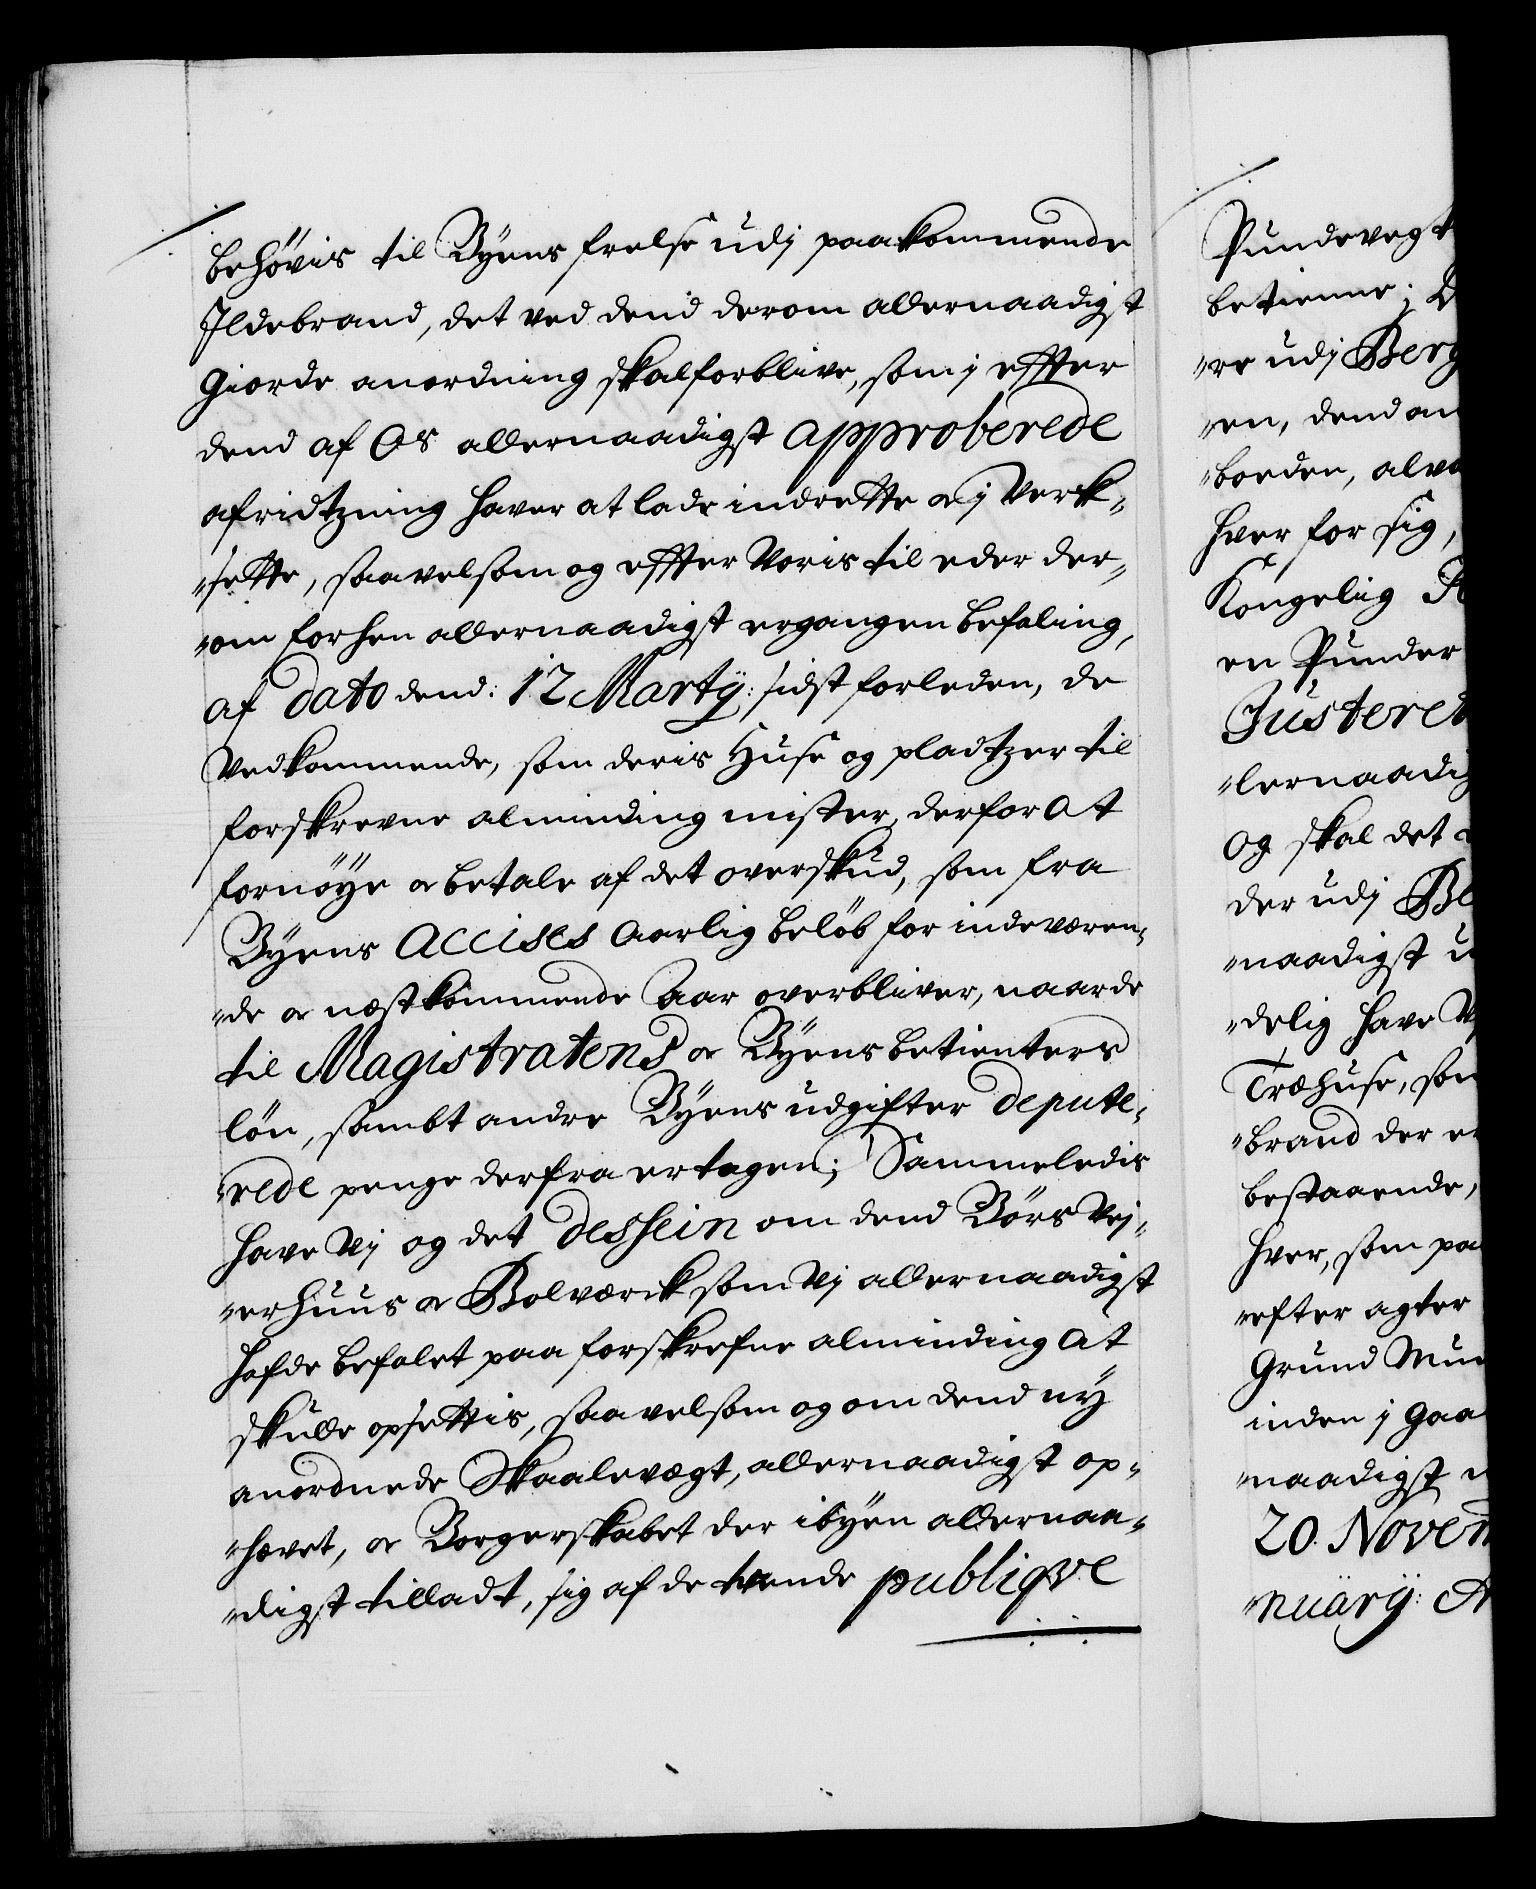 behøvis til Byens frelse udj paakommende
Ildebrand, det ved dend derom allernaadigst
giorde anordning skal forblive, som j effter
dend af Os allernaadigst approberede
afridtzning haver at lade indrette og j Verk„
„sette, saavelsom og effter Voris til eder der„
„om forhen allernaadigst ergangen befaling,
af dato dend: 12 Martÿ: sidst forleden, de
Vedkommende, som deris Huse og pladtzer til
forskrevne alminding mister, derfor at
fornøÿe og betale af det overskud, som fra
Byens Accises Aarlig beløb for indeværen„
„de og nestkommende Aar overbliver, naar de
til Magistratens og Byens betienters
løn, sambt andre Byens udgifter depute„
„rede penge derfra er tagen; Sammeledis
have Vj og det dessein om dend Børs Vej„
„erhuus og Bolværck som Vj allernaadigst
hafde befalet paa forskrefne alminding at
skulle opsettis, saavelsom og om dend nÿ
anordnede Skaalevegt, allernaadigst op„
„hævet, og Borgerskabet der i byen allernaa„
„digst tilladt, sig af de tvende publiqve
Pundevegt
betienne; D
„re udj Berg
„en, dend an
„boeden, alva
hver for sig,
Kongelig
en Punder
Justeret
„lernaadig
og skal det
der udj Be
„naadigst u
„delig have V
Træhuse, som
„brand der er
bestaaende,
hver, som pa
„efter agter
Grund Muur
inden j Gaa
„naadigst
20. Novem
„nuarÿ: A